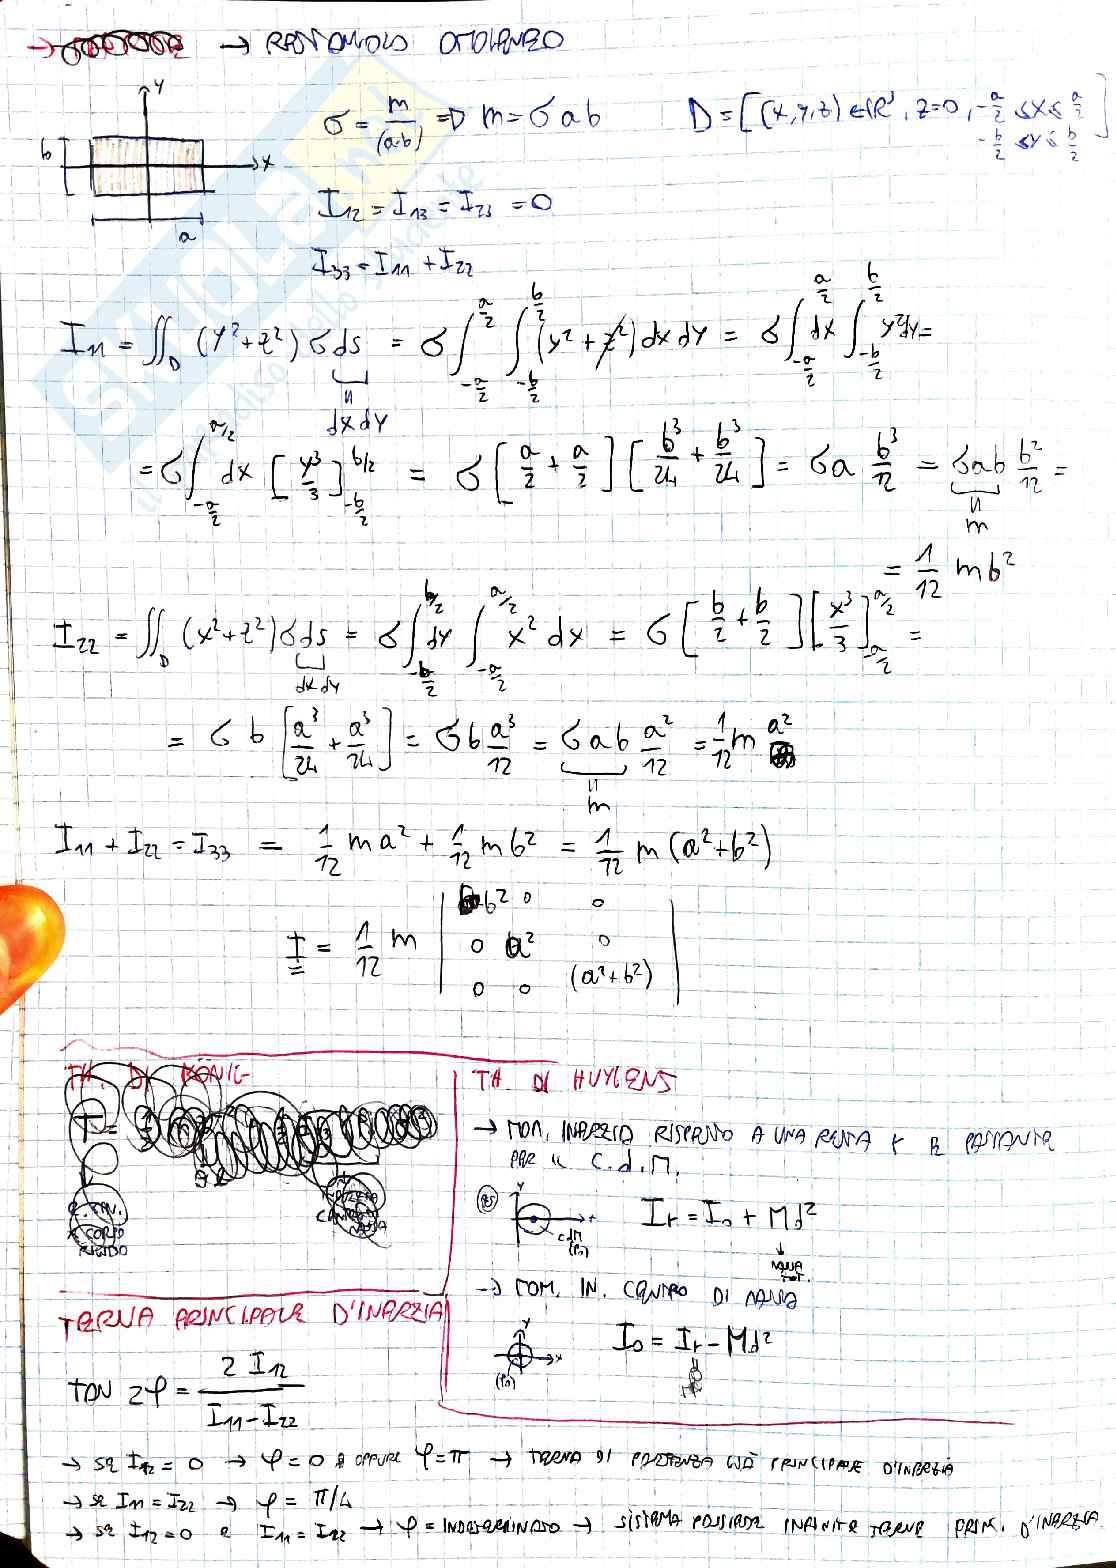 → RETTANGOLO OMOGENEO
y
b
x
a
σ = m/(a·b) ⇒ m = σab
D = [(x,y,z) ∈ ℝ³, z=0, -a/2 ≤ x ≤ a/2
-b/2 ≤ y ≤ b/2]
I₁₂ = I₁₃ = I₂₃ = 0
I₃₃ = I₁₁ + I₂₂
I₁₁ = ∬_D (y²+z²) σ ds = σ ∫_{-a/2}^{a/2} ∫_{-b/2}^{b/2} (y²+z²) dx dy = σ ∫_{-a/2}^{a/2} dx ∫_{-b/2}^{b/2} y² dy =
dx dy
= σ ∫_{-a/2}^{a/2} dx [y³/3]_{-b/2}^{b/2} = σ [a/2 + a/2] [b³/24 + b³/24] = σa b³/12 = σab b²/12 =
m
= 1/12 mb²
I₂₂ = ∬_D (x²+z²) σ ds = σ ∫_{-b/2}^{b/2} dy ∫_{-a/2}^{a/2} x² dx = σ [b/2 + b/2] [x³/3]_{-a/2}^{a/2} =
dx dy
= σ b [a³/24 + a³/24] = σb a³/12 = σab a²/12 = 1/12 m a²
m
I₁₁ + I₂₂ = I₃₃ = 1/12 ma² + 1/12 mb² = 1/12 m (a²+b²)
b² 0 0
I = 1/12 m 0 a² 0
0 0 (a²+b²)
TH. DI KÖNIG
T =
CORPO
RIGIDO
TH. DI HUYGENS
→ MOM. INERZIA RISPETTO A UNA RETTA r E PASSANTE
PER IL C.d.M.
y
CdM
(P₀)
I_r = I₀ + Md²
MASSA
TOT.
→ MOM. IN. CENTRO DI MASSA
y
x
(P₀)
I₀ = I_r - Md²
TERNA PRINCIPALE D'INERZIA
TAN 2φ = 2 I₁₂ / (I₁₁ - I₂₂)
→ SE I₁₂ = 0 → φ = 0 OPPURE φ = π → TERNA DI PARTENZA GIÀ PRINCIPALE D'INERZIA
→ SE I₁₁ = I₂₂ → φ = π/4
→ SE I₁₂ = 0 E I₁₁ = I₂₂ → φ = INDETERMINATO → SISTEMA POSSIEDE INFINITE TERNE PRIN. D'INERZIA